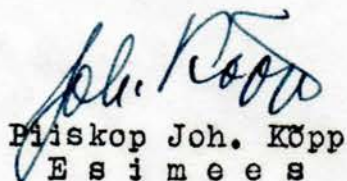 Joh. Kõpp
Piiskop Joh. Kõpp
E s i m e e s